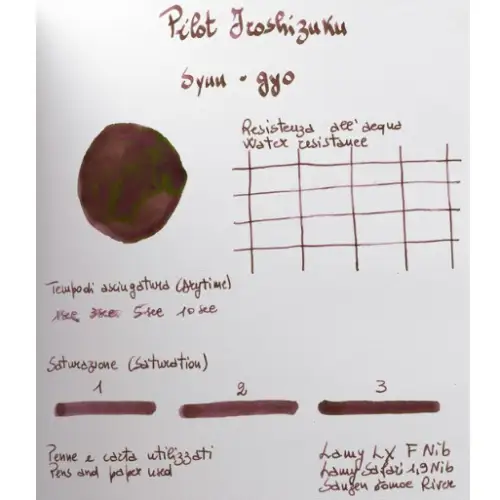 Pilot Iroshizuku
Syun - gyo
Resistenza all'acqua
Water resistance
Tempo di asciugatura (drytime)
1sec 3sec 5sec 10sec
Saturazione (Saturation)
1 2 3
Penne e carta utilizzati
Pens and paper used
Lamy LX F Nib
Lamy Safari 1,9 Nib
Sanzen Tomoe River